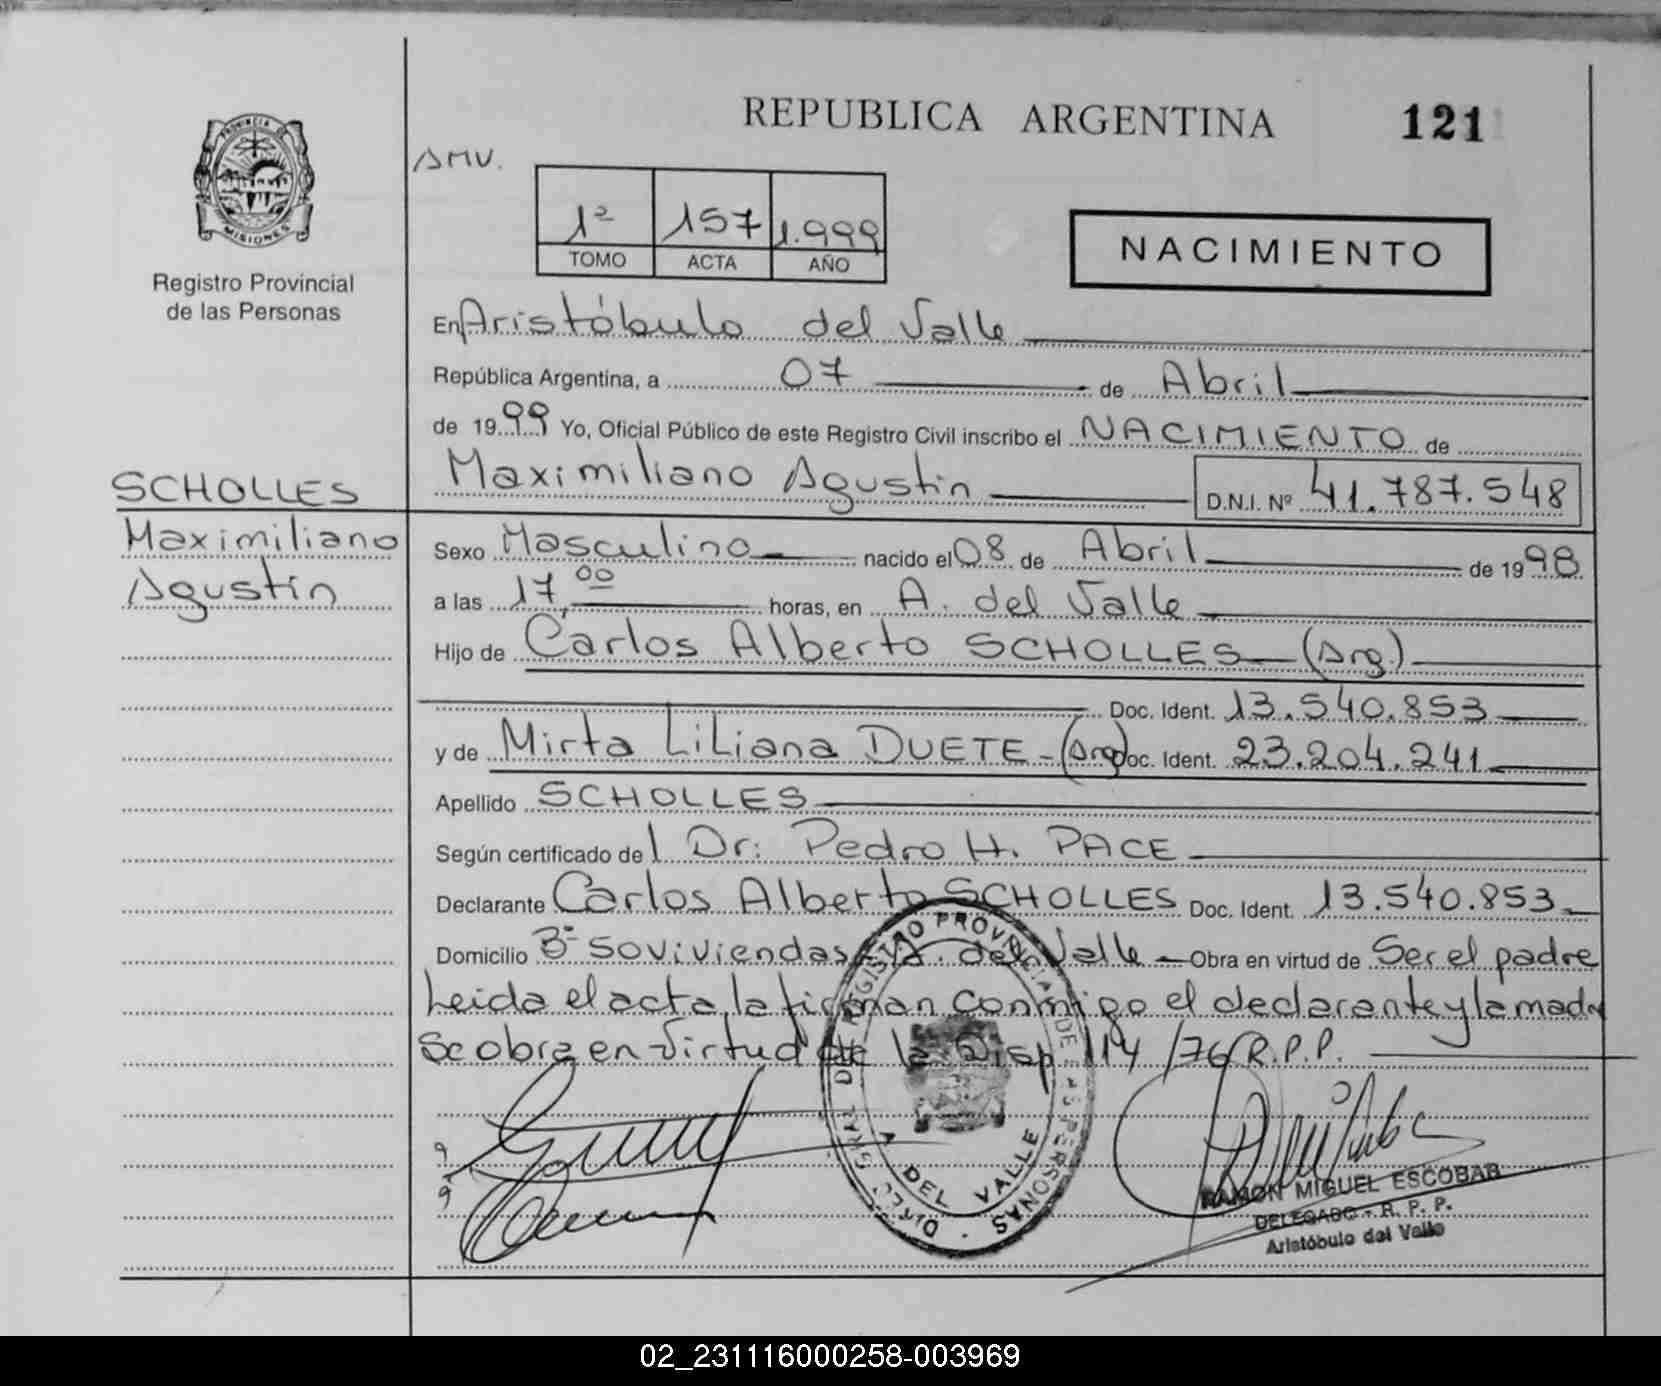 REPUBLICA ARGENTINA
121
PROVINCIA DE
MISIONES
Registro Provincial
de las Personas
AMV.
1º 157 1.999
TOMO ACTA AÑO
NACIMIENTO
En Aristóbulo del Valle
República Argentina, a 07 de Abril
de 1999 Yo, Oficial Público de este Registro Civil inscribo el NACIMIENTO de
Maximiliano Agustin D.N.I. Nº 41.787.548
SCHOLLES
Maximiliano
Agustín
Sexo Masculino nacido el 08 de Abril de 1998
a las 17,00 horas, en A. del Valle
Hijo de Carlos Alberto SCHOLLES (Arg.)
Doc. Ident. 13.540.853
y de Mirta Liliana DUETE - (Arg) Doc. Ident. 23.204.241
Apellido SCHOLLES
Según certificado del Dr: Pedro H. PACE
Declarante Carlos Alberto SCHOLLES Doc. Ident. 13.540.853
Domicilio Bº 50 viviendas A. del Valle - Obra en virtud de Ser el padre
Leida el acta, la firman conmigo el declarante y la madre
Se obra en virtud de la Disp. 114/76 R.P.P.
DIREC. GRAL DEL REGISTRO PROVINCIAL DE LAS PERSONAS
A. DEL VALLE
RAMON MIGUEL ESCOBAR
DELEGADO - R. P. P.
Aristóbulo del Valle
02_231116000258-003969